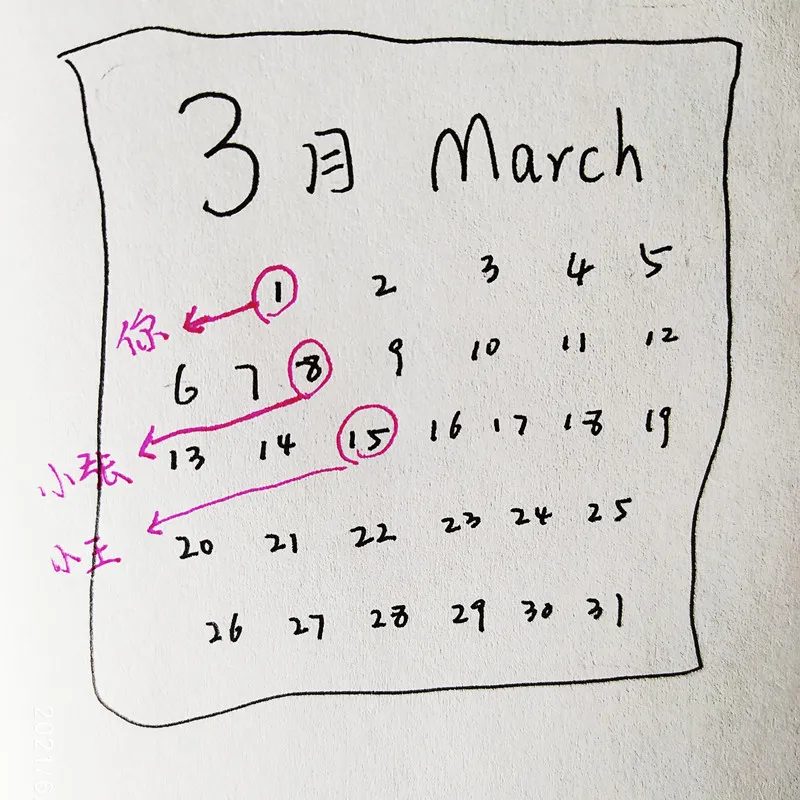 3月 March
1 2 3 4 5
你
6 7 8 9 10 11 12
13 14 15 16 17 18 19
小张
20 21 22 23 24 25
小王
26 27 28 29 30 31